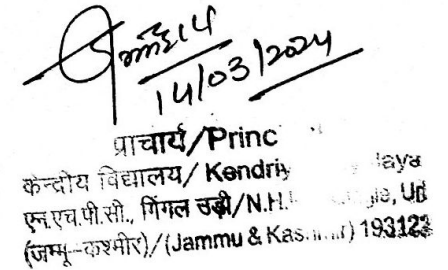 14/03/2024
प्राचार्य/Princ
केन्द्रीय विद्यालय/ Kendriy laya
एन.एच.पी.सी., गिंगल उड़ी/N.H.
(जम्मू-कश्मीर)/(Jammu & Kas r) 193123